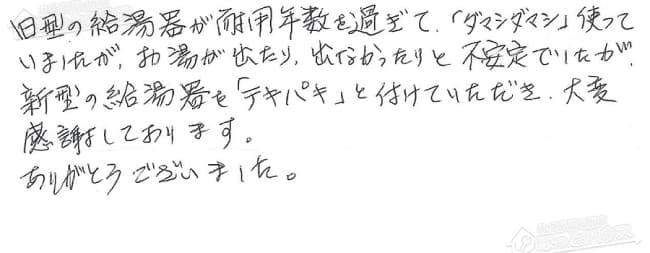 旧型の給湯器が耐用年数を過ぎて、「ダマシダマシ」使って
いましたが、お湯が出たり、出なかったりと不安定でしたが、
新型の給湯器を「テキパキ」と付けていただき、大変
感謝しております。
ありがとうございました。